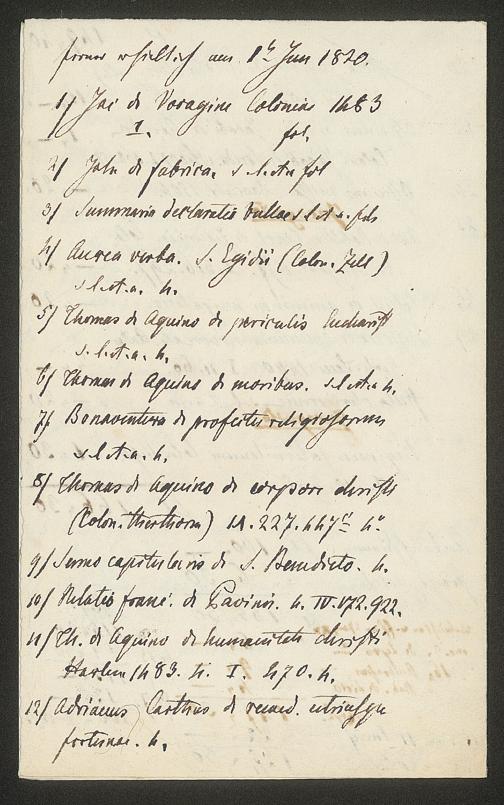 ferner erhielt ich am 1t Jun 1820.
1/ Jac de Voragine Coloniae 1483
I. fol.
2/ Joh. de fabrica. s l. et a fol
3/ Summaria declaratio bullae s l et a. fol
4/ Aurea verba. S. Egidii (Colon. Zell)
s l. et. a. 4.
5/ Thomas de Aquino de periculis Eucharist
s. l. et. a. 4.
6/ Thomas de Aquino de moribus. s l. et a 4.
7/ Bonaventura de profectu religiosorum
s. l. et. a. 4.
8/ Thomas de Aquino de corpore christi
(Colon. Therhorn) 4. 227. 447 4o
9/ Sermo capitularis de S. Benedicto. 4.
10/ Relatio de Pavinis. 4. IV. 172. 922.
11/ Th. de Aquino de humanitate christi
Harlem 1483. 4. I. 470. 4.
12/ Adrianus Carthus de remed. utriusque
fortunae. 4.